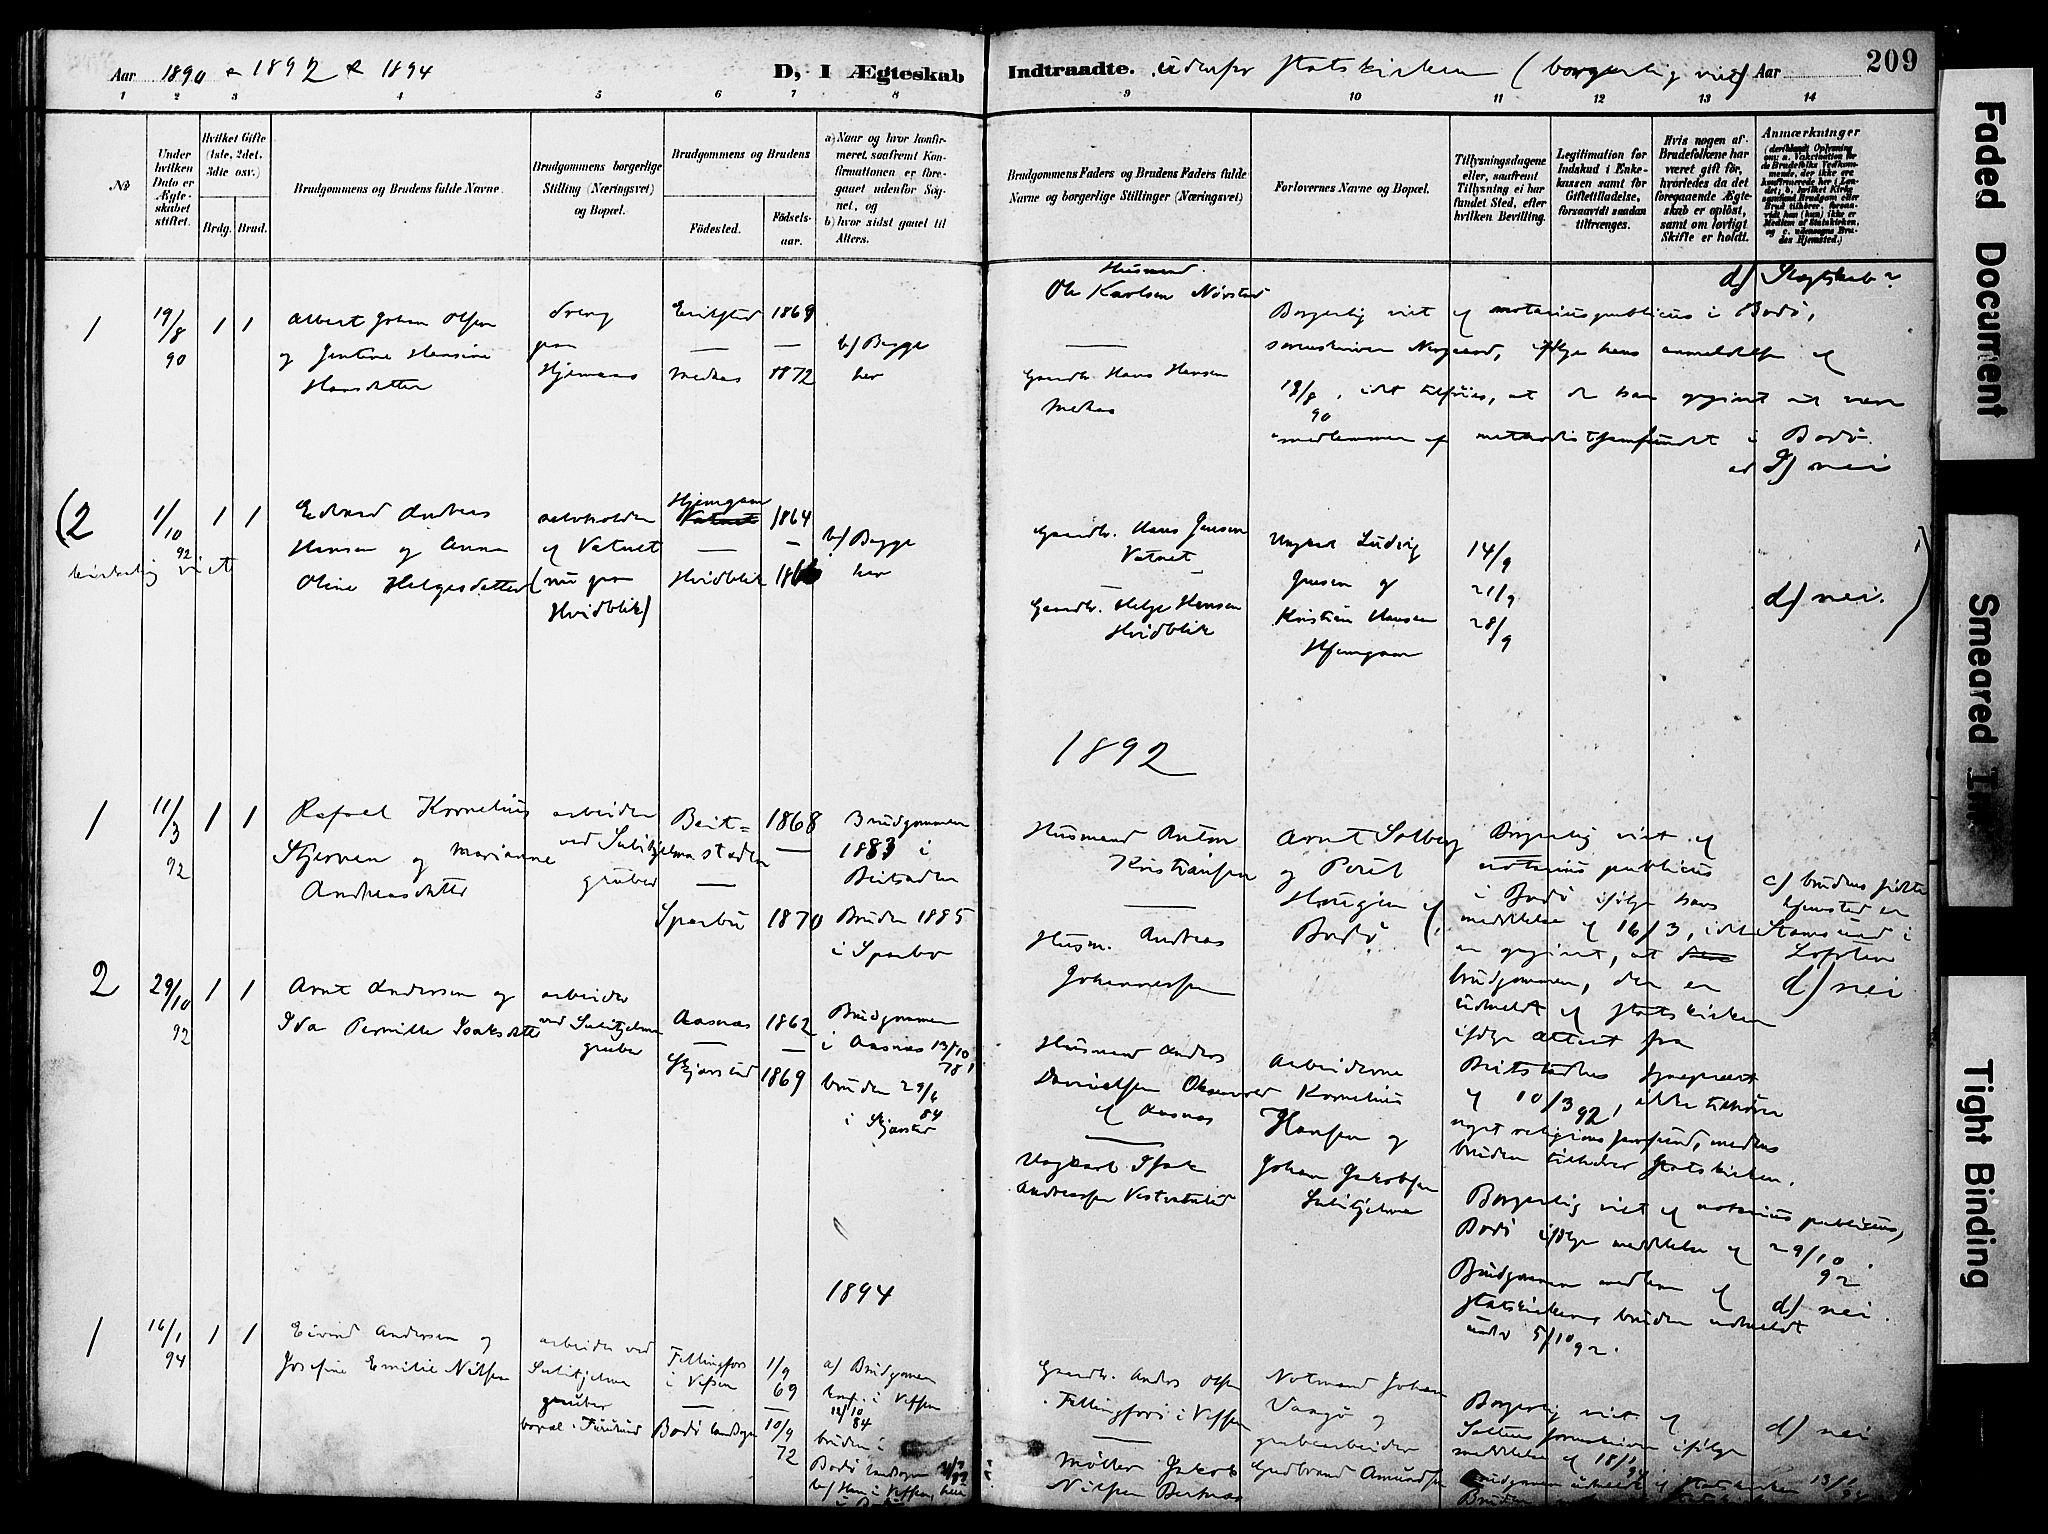 Aar 1890 & 1892 & 1894
D, I Ægteskab
Indtraadte. udenfor statskirken (borgerlig viet) Aar
209
1 2 3 4 5 6 7 8
9 10 11 12 13 14
No
Under hvilken Dato er Ægteskabet stiftet.
Hvilket Gifte (1ste, 2det, 3die osv.)
Brdg. Brud.
Brudgommens og Brudens fulde Navne.
Brudgommens borgerlige Stilling (Næringsvei) og Bopæl.
Brudgommens og Brudens
Födested.
Födsels-aar.
a) Naar og hvor konfirmeret, saafremt Konfirmationen er foregaaet udenfor Sognet, og
b) hvor sidst gaaet til Alters.
Brudgommens Faders og Brudens Faders fulde Navne og borgerlige Stillinger (Næringsvei)
Forlovernes Navne og Bopæl.
Tillysningsdagene eller, saafremt Tillysning ei har fundet Sted, efter hvilken Bevilling.
Legitimation for Indskud i Enkekassen samt for Giftetilladelse, forsaavidt saadan tiltrænges.
Hvis nogen af Brudefolkene har været gift för, hvorledes da det foregaaende Ægteskab er oplöst, samt om lovligt Skifte er holdt.
Anmærkninger
(deriblandt Oplysning om: a. Vakcination for de Brudefolks Vedkommende, der ikke ere konfirmerede her i Landet; b. hvilket Kirkesamfund Brudgom eller Brud tilhörer, forsaavidt han (hun) ikke er Medlem af Statskirken, og c. udensogns Brudes Hjemsted.)
1
19/8 90
1 1
Albert Johan Olsen
og Jentine Hansine
Hansdatter
dreng
paa
Hjemaas
1869
—
1872
b) Begge
her
Husmand
Ole Karlsen Nørstad
—
Gaardbr. Hans Hansen
d) Slegtskab?
Borgerlig viet af notarius publicus i Bodø,
sorenskriver Norgaard, ifølge hans anmeldelse af
19/8 90, idet tilføies, at de har opgivet at være
medlemmer af methodistsamfundet i Bodø.
ad d) nei
(2
1/10 92
kirkelig viet
1 1
Edvard Andreas
Hansen og Anna
Oline Helgesdatter
selvholder
af Vatnet
(nu paa
Hvidblik)
Hjemgam
Vatnet
—
Hvidblik
1864
—
b) Begge
her
Gaardb. Hans Jensen
Vatnet
—
Gaardb. Helge Hansen
Hvidblik
Ungkarl Ludvig
Jensen og
Kristian Hansen
Hjemgam
14/9
21/9
28/9
d) nei. )
1892
1
11/3 92
1 1
Rafael Kornelius
Skjerven og Marianne
Andreasdatter
arbeider
ved Sulitjelma
gruber
Beit=
stadden
—
Sparbu
1868
—
1870
Brudgommen
1883 i
Beitstaden
Bruden 1885
i Sparbo
Husmand Anton
Kristiansen
—
Husm. Andreas
Johannessen
Arnt Solberg
og Peret
Haugen af
Bodø
Borgerlig viet af
notarius publicus
i Bodø ifølge hans
meddelelse af 16/3, idet
er opgivet, at
brudgommen, der er
udmeldt af statskirken
ifølge attest fra
Beitstadens sognepræst
af 10/3 92, ikke tilhører
noget religions samfund, medens
bruden tilhører statskirken.
c) brudens sidste
hjemsted er
Stamsund i
Lofoten
d) nei
2
29/10 92
1 1
Arnt Andersen og
Ida Pernille Isaksdatter
arbeider
ved Sulitjelma
gruber
Aasnæs
—
Skjerstad
1862
—
1869
Brudgommen
i Aasnæs 13/10
78
bruden 29/6
84
i Skjerstad
Husmand Anders
Danielsen
af Aasnæs
—
Ungkarl Isak
Andreassen Vestvatnlid
Arbeiderne
Kornelius
Hansen og
Johan Jakobsen
Sulitjelma
Borgerlig viet af notarius publicus,
Bodø ifølge meddelelse af 29/10 92.
Brudgommen medlem af
statskirken, bruden udmeldt
under 5/10 92.
d) nei.
1894
1
16/1 94
1 1
Eivind Andersen og
Josefine Emilie Nilsen
arbeider ved
Sulitjelma
gruber
bopæl i Furulund
Fellingfors
i Vefsen
—
Bodø landsogn
1/9 69
—
10/9 72
a) Brudgommen
konf. i Vefsen
12/10 84
bruden i
Bodø landsogn
b) Han i Vefsen, hun
Gaardb. Anders Olsen
Fellingfors i Vefsen
—
Møller Jakob
Nilsen
Notmand Johan
Vaagø og
grubearbeider
Gudbrand Amundsen
Borgerlig viet af
Saltens sorenskriver ifølge
meddelelse af 18/1 94
Brudgommen udmeldt af statskirken 13/1 94
d) nei
Faded Document
Smeared Ink
Tight Binding